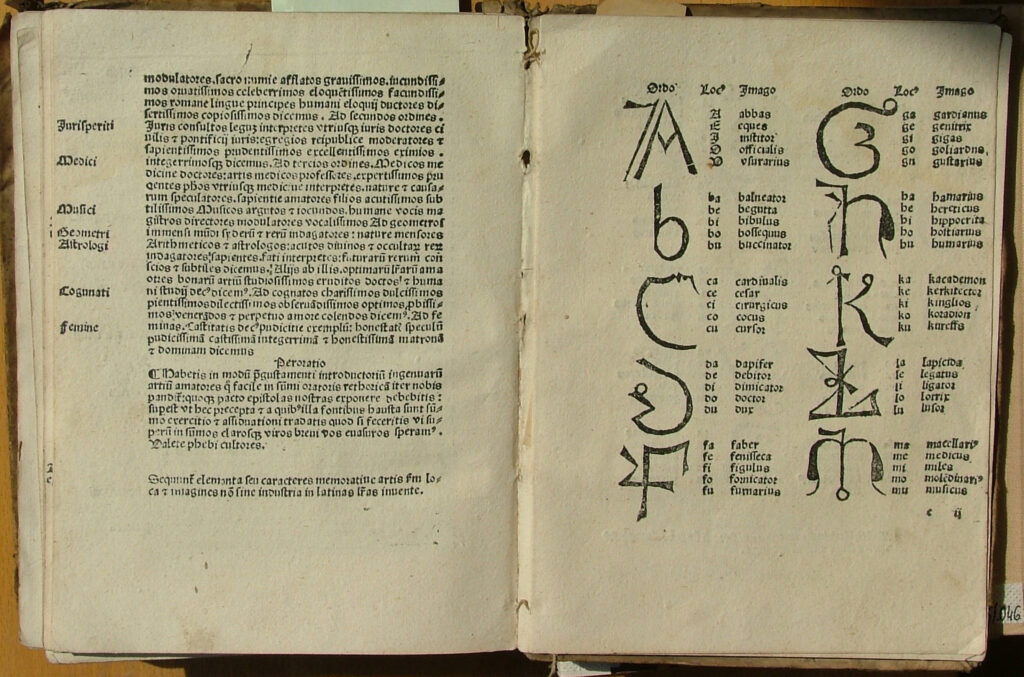 modulatores. sacro numie afflatos grauissimos. iucundissi⸗
mos ornatissimos celeberrimos eloquētissimos facundissi⸗
mos romane lingue principes humani eloquij ductores di⸗
sertissimos copiosissimos dicemus. Ad secundos ordines.
Jurisperiti
Juris consultos legum interpretes vtriusqꝫ iuris doctores ci
uilis ⁊ pontificij iuris: egregios reipublice moderatores ⁊
sapientissimos prudentissimos excellentissimos eximios.
Medici
integerrimosqꝫ dicemus. Ad tercios ordines. Medicos me
dicine doctores: artis medicos professores. expertissimos pru
dentes phos vtriusqꝫ medicine interpretes. nature ⁊ causa⸗
rum speculatores. sapientie amatores filios acutissimos sub
Musici
tilissimos Musicos argutos ⁊ iocundos. humane vocis ma
gistros directores modulatores vocalissimos Ad geometros
Geometri
immensi mūdi ⁊ rerū indagatores: nature mensores
Astrologi
Arithmeticos ⁊ astrologos: acutos diuinos ⁊ occultaꝝ reꝝ
indagatores: sapientes. fati interpretes: futuraꝝ rerum con
scios ⁊ subtiles dicemus. Alijs ab illis. optimarū lr̄arum ama
tores bonarū artiū studiosissimos eruditos doctos ⁊ huma
Cognati
ni studij decꝰ dicemꝰ. Ad cognatos charissimos dulcissimos
pientissimos dilectissimos obseruādissimos optimos. phissi⸗
mos: venerādos ⁊ perpetuo amore colendos dicemꝰ. Ad fe
Femine
minas. Castitatis decꝰ pudicitie exemplū: honestatꝭ speculū
pudicissimā castissimā integerrimā ⁊ honestissimā matronā
⁊ dominam dicemus
Peroratio
Habetis in modū p̄gustamenti introductoriū ingenuarū
artiū amatores ꝗ̄ facile in sūmi oratoris rethoricā iter nobis
pandit: quoqꝫ pacto epistolas nostras exponere debebitis:
supest vt hec precepta ⁊ a quibꝰ illa fontibus hausta sunt sū⸗
mo exercitio ⁊ assiduationi tradatis quod si feceritis vi su⸗
in sūmos clarosqꝫ viros breui vos euasuros speramꝰ.
Valete phebi cultores.
Sequūtur elementa seu caracteres memoratiue artis ẜm lo⸗
ca ⁊ imagines nō sine industria in latinas lr̄as inuente.
Ordo Locꝰ Imago
A
A abbas
E eques
I institor
O officialis
V vsurarius
b
ba balneator
be begutta
bi bibulus
bo bossequus
bu buccinator
C
ca cardinalis
ce cesar
ci cirurgicus
co cocus
cu cursor
D
da dapifer
de debitor
di dimicator
do doctor
du dux
F
fa faber
fe fenisseca
fi figulus
fo fornicator
fu furnarius
Ordo Locꝰ Imago
G
ga gardianus
ge genitrix
gi gigas
go goliardus
gu gustarius
h
ha hamarius
he hereticus
hi hippocrita
ho hostiarius
hu humarius
K
ka kacademon
ke kerkitector
ki kinglios
ko koradion
ku kureffs
L
la lapicida
le legatus
li ligator
lo lotrix
lu lusor
M
ma macellariꝰ
me medicus
mi miles
mo molēdinariꝰ
mu musicus
c ij
046